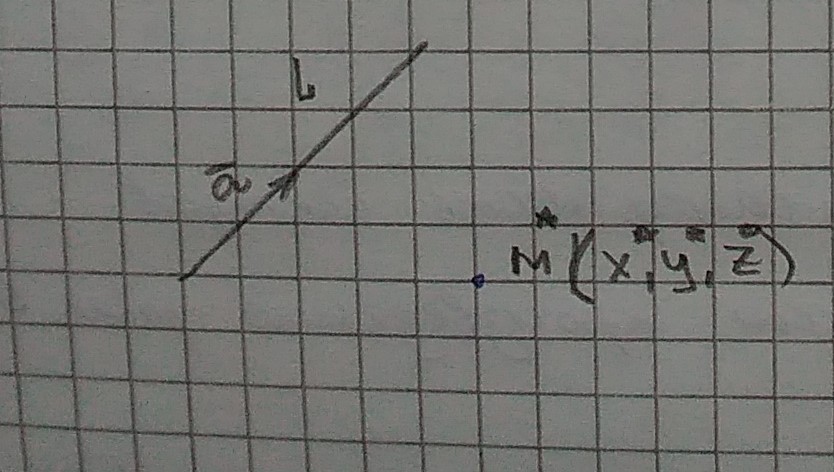 L
ā
M*(x*, y*, z*)